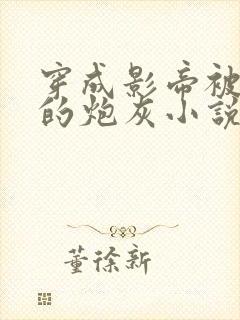 穿成影帝被
的炮灰小說
董徐新